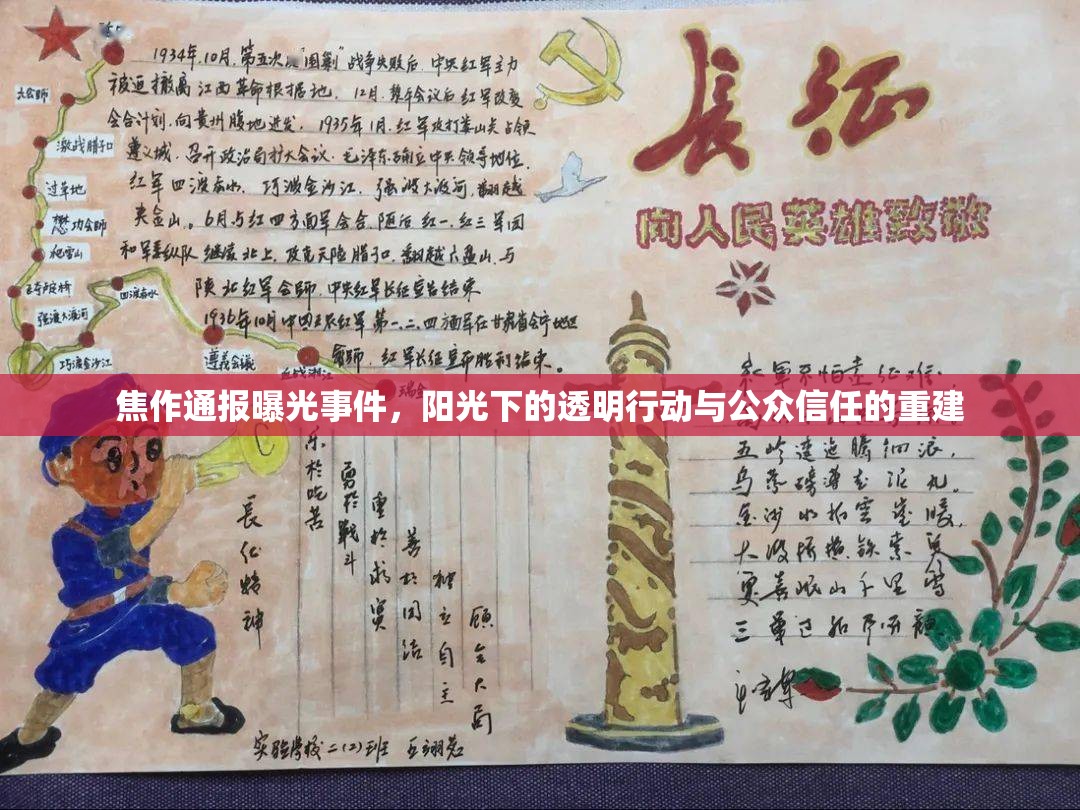 长征
向人民英雄致敬
1934年10月,第五次反"围剿"战争失败后,中央红军主力
被迫撤离江西革命根据地。12月,黎平会议后红军改变
会合计划,向贵州腹地进发。1935年1月,红军攻打娄山关占领
遵义城,召开政治局扩大会议,毛泽东确立中央领导地位。
红军四渡赤水,巧渡金沙江,强渡大渡河,翻越
夹金山。6月与红四方面军会合,随后红一、红三军团
和军委纵队继续北上,攻克天险腊子口,翻越六盘山,与
陕北红军会师,中央红军长征宣告结束
1936年10月中国工农红军第一、二、四方面军在甘肃省会宁地区
会师,红军长征宣布胜利结束。
大会师
激战腊子口
过草地
懋功会师
爬雪山
飞夺泸定桥
强渡大渡河
巧渡金沙江
四渡赤水
遵義会議
血战湘江
瑞金
焦作通报曝光事件，阳光下的透明行动与公众信任的重建
長征精神
乐於吃苦
勇於戰斗
重於求實
善於团结
獨立自主
顾全大局
实验学校二(2)班
红軍不怕遠征难,
五岭逶迤腾细浪,
乌蒙磅礴走泥丸。
金沙水拍雲崖暖,
大渡桥横铁索寒
更喜岷山千里雪
三軍过後尽开颜